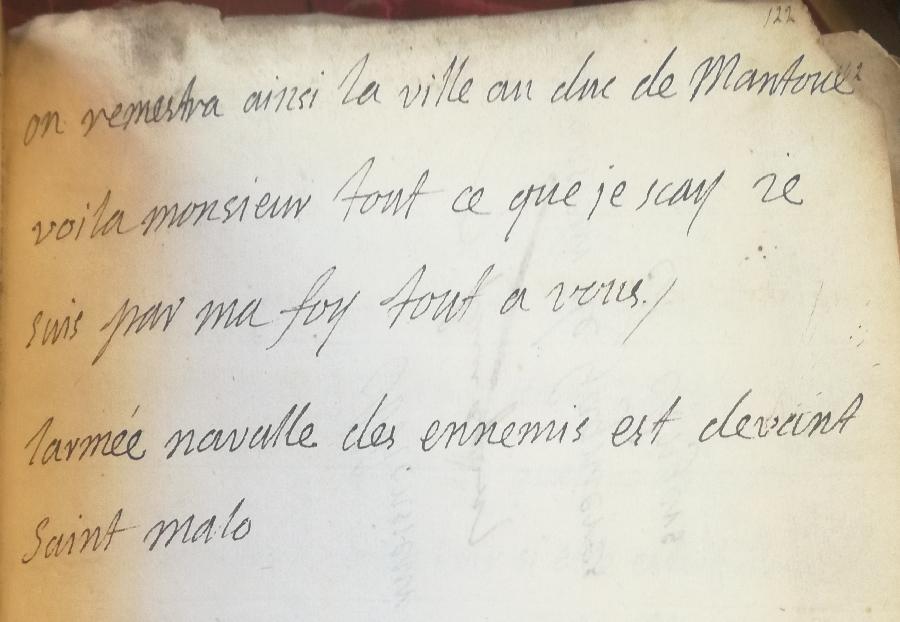 122
on remestra ainsi la ville au duc de Mantoue
voila monsieur tout ce que je scay ie
suis par ma foy tout a vous./
larmée navalle des ennemis est devant
Saint malo